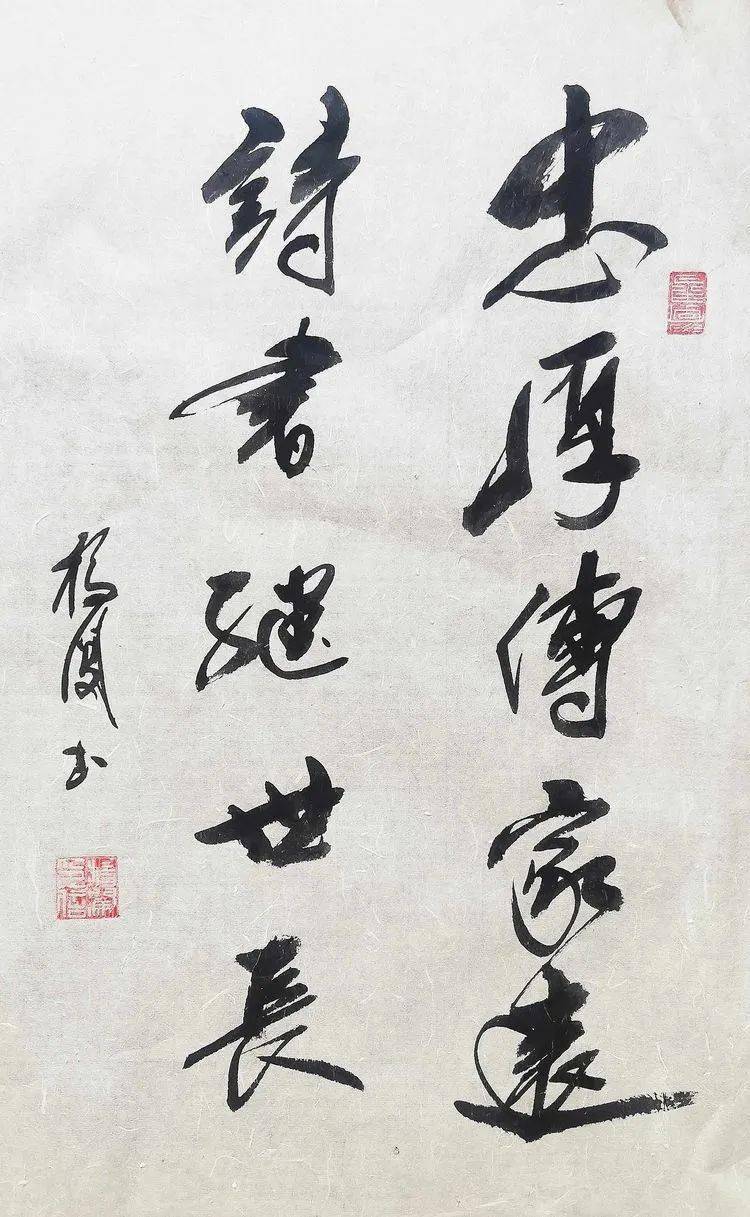 忠厚傳家遠
詩書繼世長
書